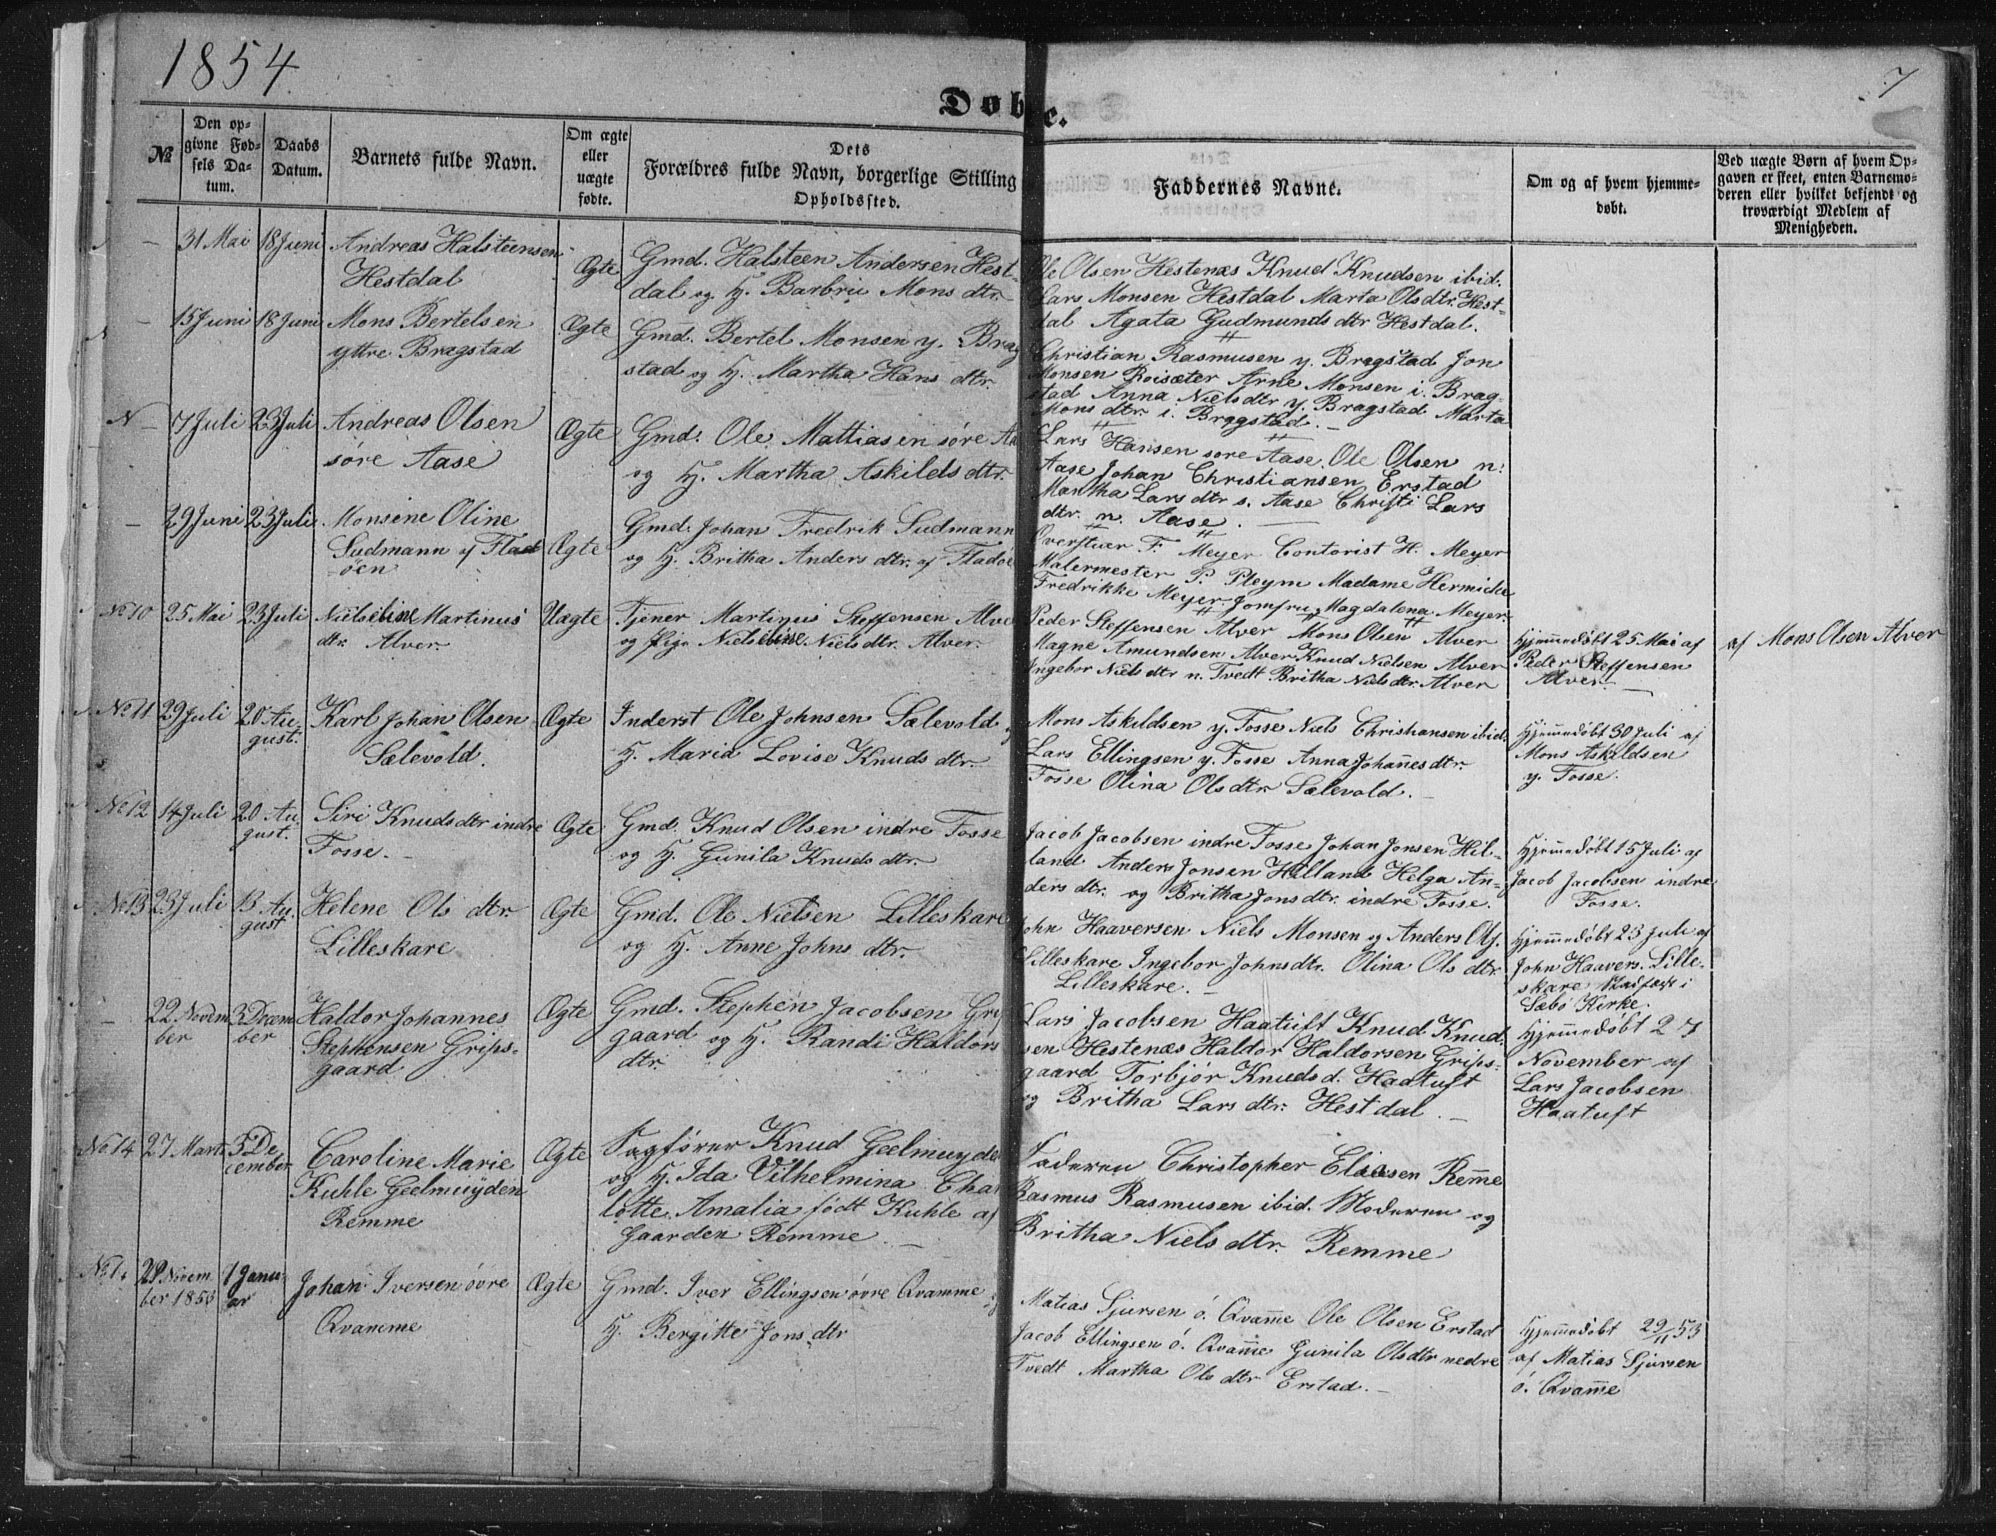 1854.
7
Døbte.
No
Den op-
givne Fød-
sels Da-
tum.
Daabs
Datum.
Barnets fulde Navn.
Om ægte
eller
uægte
fødte.
Dets
Forældres fulde Navn, borgerlige Stilling
Opholdssted.
Faddernes Navne.
Om og af hvem hjemme-
døbt.
Ved uægte Børn af hvem Op-
gaven er skeet, enten Barnemo-
deren eller hvilket bekjendt og
troværdigt Medlem af
Menigheden.
– 31 Mai 18 Juni Andreas Halsteensen
Hestdal
Ægte
Gmd. Halsteen Andersen Hest-
dal og H. Barbru Mons dtr.
Ole Olsen Hestenæs Knud Knudsen ibid.
Lars Monsen Hestdal Marta Ols dtr. Hest-
dal Agata Gudmunds dtr Hestdal.
– 15 Juni 18 Juni Mons Bertelsen
yttre Bragstad
Ægte
Gmd. Bertel Monsen y. Brag
stad og H. Martha Hans dtr
Christian Rasmusen y. Bragstad Jon
Monsen Roisæter Arne Monsen i. Brag-
stad Anna Niels dtr y. Bragstad Marta
Mons dtr i. Bragstad. –
N – 7 Juli 23 Juli Andreas Olsen
søre Aase
Ægte
Gmd. Ole Mattiasen søre Aa
og H. Martha Askilds dtr.
Lars Hansen søre Aase. Ole Olsen n.
Aase Johan Christiansen Erstad
Martha Lars dtr s. Aase Christi Lars
dtr. n. Aase. –
– 29 Juni 23 Juli Monsine Oline
Sudmann y Flad
øen
Ægte
Gmd. Johan Fredrik Sudmann
og H. Britha Anders dtr. af Fladøe
Overstuer F. Meyer Contorist H. Meyer
Malermester P. Pleym Madame Hermicke
Fredrikke Meyer. Jomfru Magdalena Meyer
No 10 25 Mai 23 Juli Nielseline Martinus
dtr. Alver.
Uægte
Tjener Martinus Steffensen Alve
og Pige Nielseline Niels dtr. Alver.
Peder Steffensen Alver Mons Olsen Alver
Magne Amundsen Alver Knud Nielsen Alver
Ingebor Niels dtr n. Tvedt Britha Niels dtr. Alver
Hjemmedøbt 25 Mai af
Peder Steffensen
Alver. –
af Mons Olsen Alver
No 11 29 Juli 20 Au-
gust. Karl Johan Olsen
Sælevold.
Ægte
Inderst Ole Johnsen Sælevold
H. Maria Lovise Knuds dtr.
Mons Askildsen y. Fosse Niels Christiansen ibid.
Lars Ellingsen y. Fosse Anna Johannes dtr.
Fosse Olina Ols dtr Sælevold. –
Hjemmedøbt 30 Juli af
Mons Askildsen
y. Fosse.
No 12 14 Juli 20 Au-
gust. Siri Knuds dtr indre
Fosse. –
Ægte
Gmd. Knud Olsen indre Fosse
og H. Gunila Knuds dtr.
Jacob Jacobsen indre Fosse Johan Jonsen Hil-
land Anders Jonsen Hilland Helga An-
ders dtr. og Britha Jons dtr. indre Fosse.
Hjemmedøbt 15 Juli af
Jacob Jacobsen indre
Fosse.
No 13 23 Juli 13 Au-
gust Helene Ols dtr.
Lilleskare
Ægte
Gmd. Ole Nielsen Lilleskare
og H. Anne Johns dtr.
John Haaversen Niels Monsen og Anders Ols.
Lilleskare Ingebor Johns dtr. Olina Ols dtr
Lilleskare. –
Hjemmedøbt 23 Juli af
John Haavers. Lille-
skare Stadfæst i
Sæbø Kirke.
– 22. Novem
ber 3 Decem
ber Haldor Johannes
Stephensen Grips-
gaard
Ægte
Gmd. Stephen Jacobsen Grip
gaard og H. Randi Haldors
dtr.
Lars Jacobsen Haatuft Knud Knud-
sen Hestenæs Haldor Haldorsen Grips-
gaard Torbjør Knuds d. Haatuft
og Britha Lars dtr. Hestdal. –
Hjemmedøbt 27
November af
Lars Jacobsen
Haatuft
No 14 27 Marts 3 De
cember Caroline Marie
Kuhle Geelmuÿden
Remme
Ægte
Sagfører Knud Geelmuyde
og H. Ida Vilhelmina Char
lotte Amalia født Kuhle af
Gaarden Remme. –
Faderen Christopher Eliasen Remme
Rasmus Rasmusen ibid. Moderen og
Britha Niels dtr. Remme
29 Novem
ber 1853 1 Janu-
ar Johan Iversen øvre
Qvamme
Ægte
Gmd. Iver Ellingsen øvre Qvamme
H. Bergitte Jons dtr
Matias Sjursen ø. Qvamme Ole Olsen Erstad
Jacob Ellingsen ø. Qvamme Gunila Ols dtr nedre
Tvedt Martha Ols dtr Erstad. –
Hjemmedøbt 29/11 53
af Matias Sjursen
ø. Qvamme